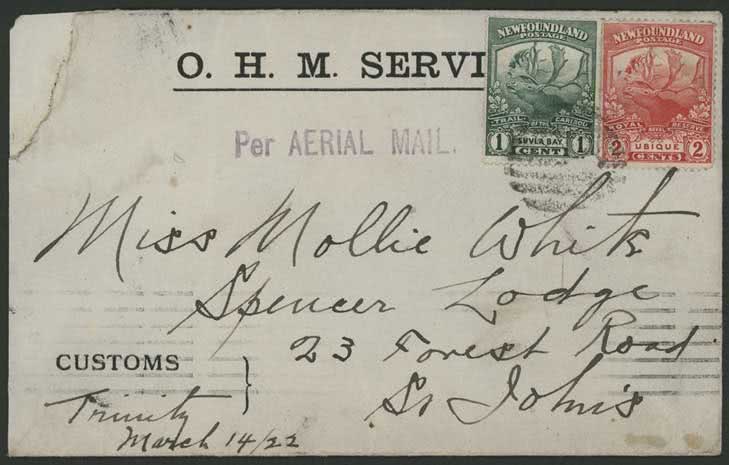 O. H. M. SERVI
NEWFOUNDLAND
POSTAGE
TRAIL OF THE CARIBOU
1 SUVLA BAY 1
CENT
NEWFOUNDLAND
POSTAGE
ROYAL NAVAL RESERVE
2 UBIQUE 2
CENTS
Per AERIAL MAIL.
Miss Mollie White
Spencer Lodge
23 Forest Road
St John's
CUSTOMS
Trinity
March 14/22